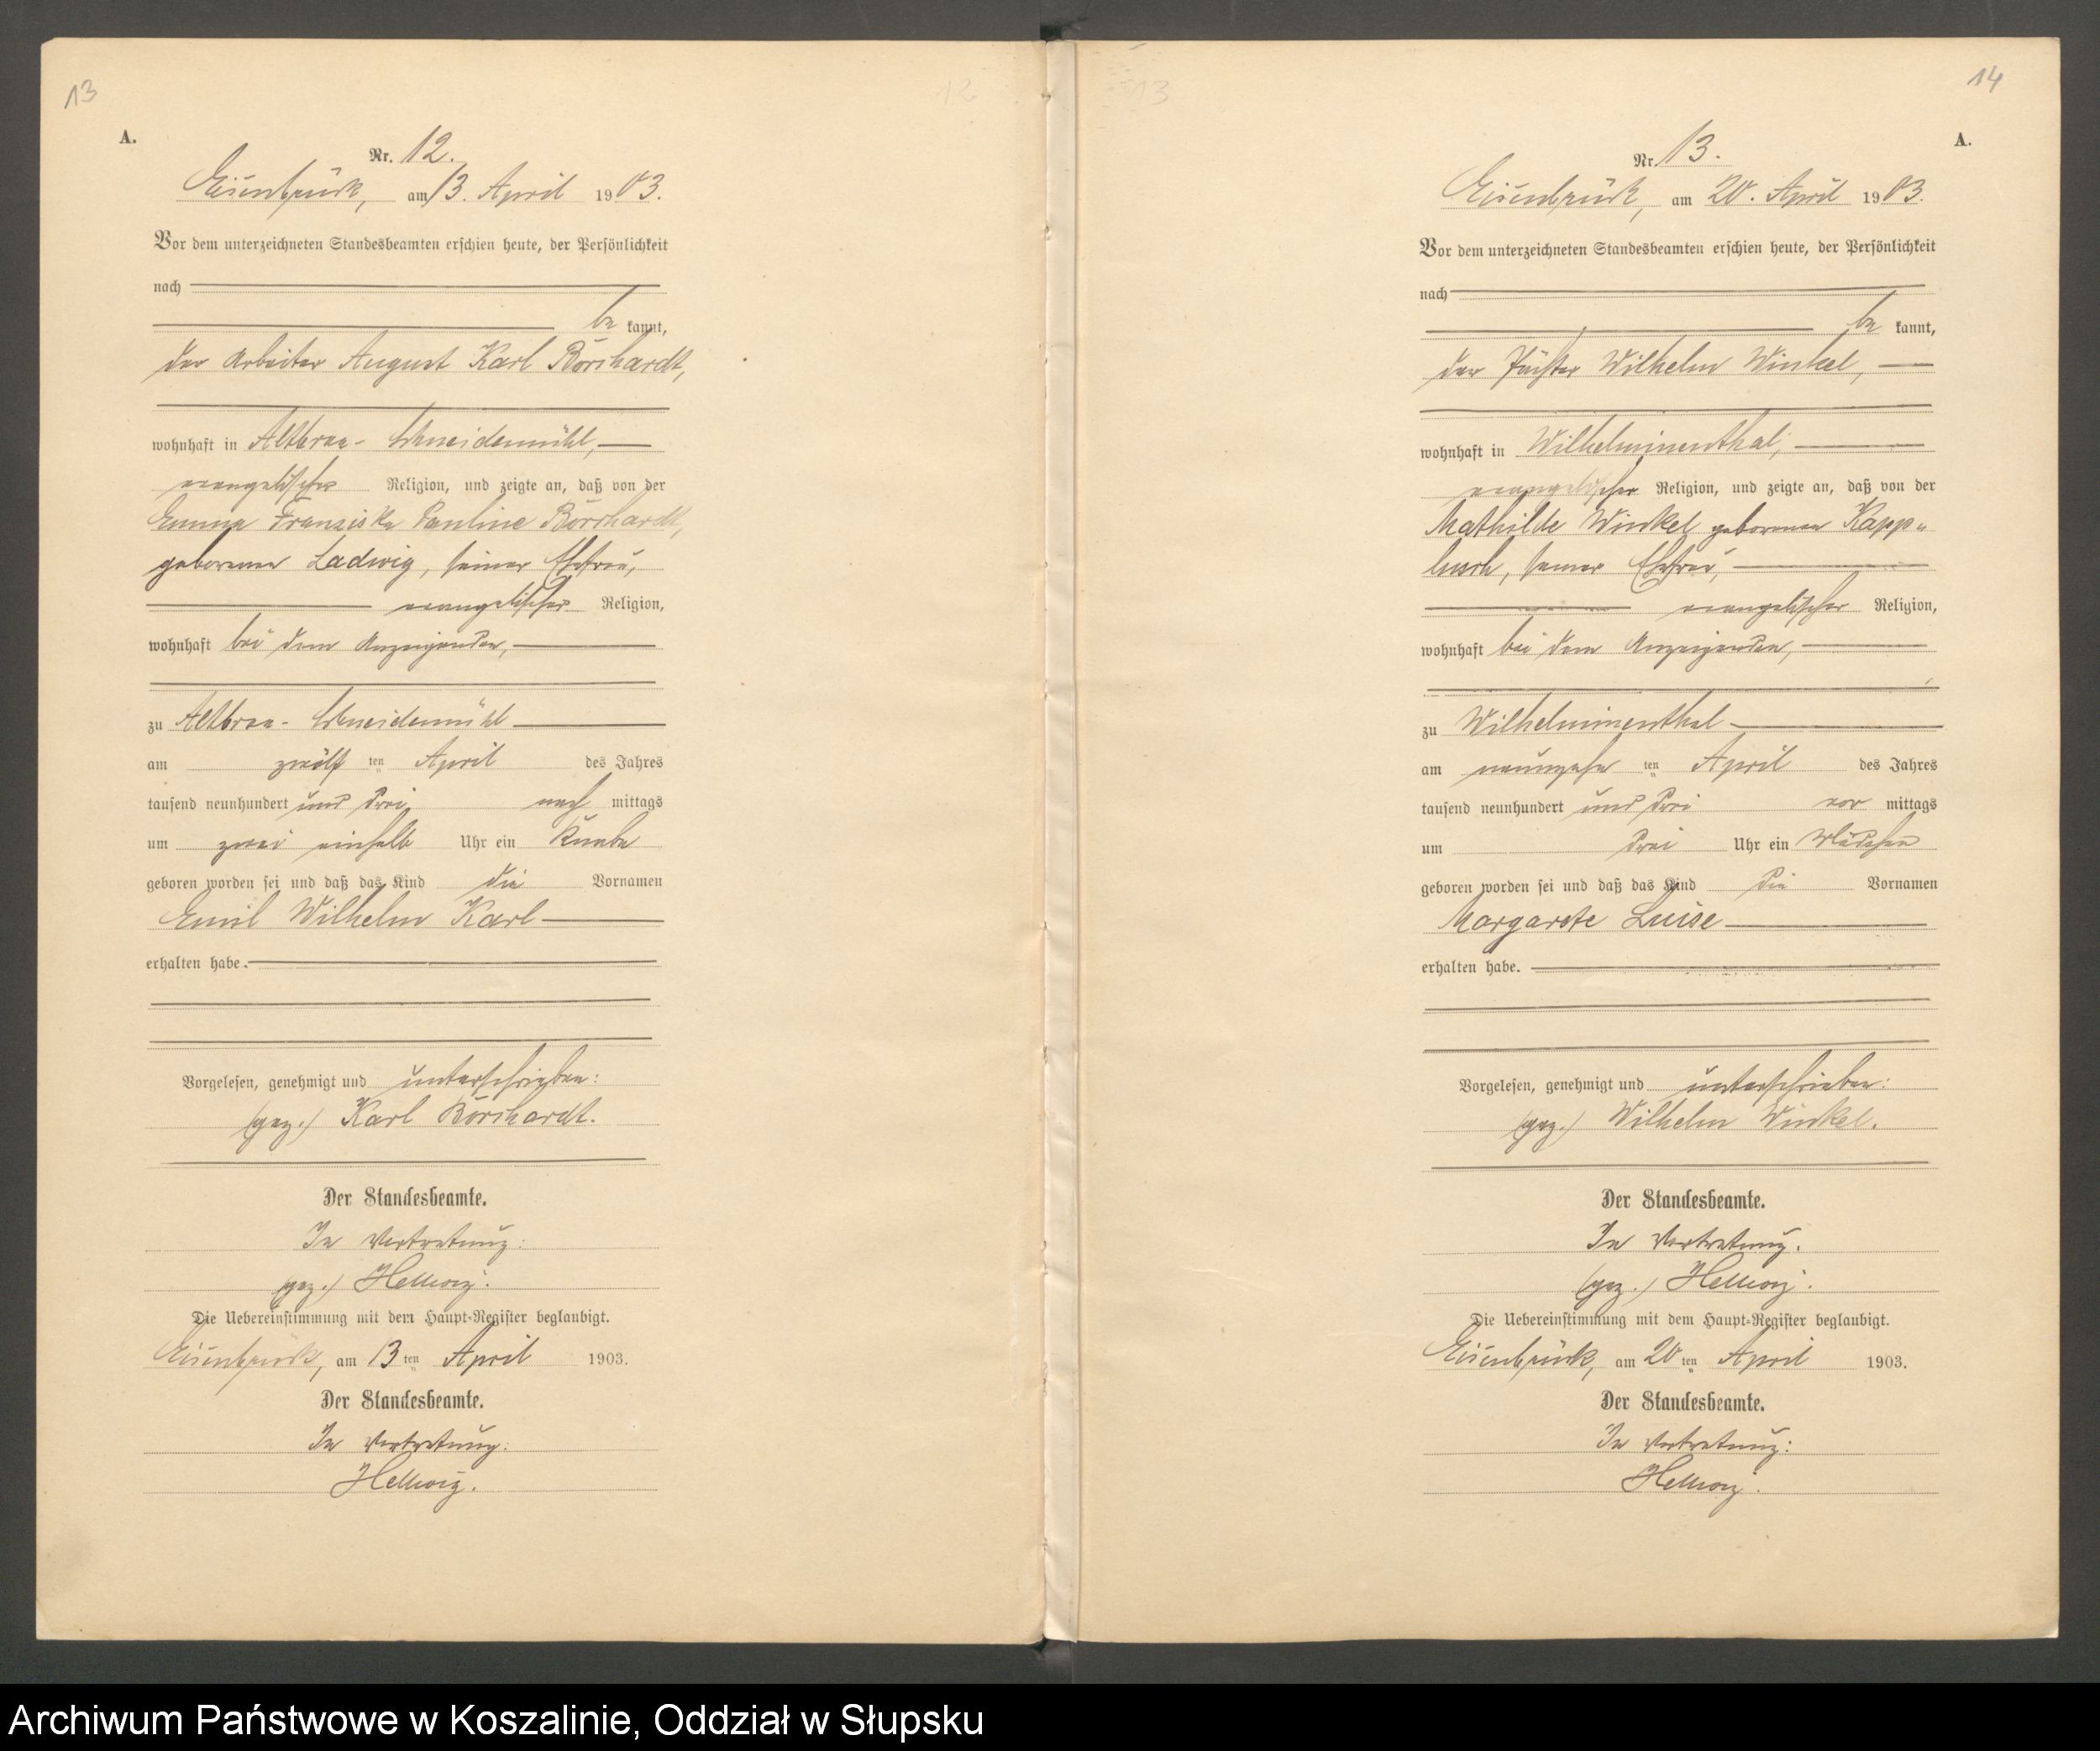 13
A.
Nr. 12.
Eisenbrück, am 13. April 1903.
Vor dem unterzeichneten Standesbeamten erschien heute, der Persönlichkeit
nach
be kannt,
der Arbeiter August Karl Borchardt,
wohnhaft in Altbraa-Schneidemühl,
evangelischer Religion, und zeigte an, daß von der
Emma Franziska Pauline Borchardt,
geborenen Ladwig, seiner Ehefrau,
evangelischer Religion,
wohnhaft bei dem Anzeigenden,
zu Altbraa-Schneidemühl
am zwölf ten April des Jahres
tausend neunhundert und drei nach mittags
um zwei einhalb Uhr ein Knabe
geboren worden sei und daß das Kind die Vornamen
Emil Wilhelm Karl
erhalten habe.
Vorgelesen, genehmigt und unterschrieben:
(gez.) Karl Borchardt.
Der Standesbeamte.
In Vertretung:
(gez.) Hellwig.
Die Uebereinstimmung mit dem Haupt-Register beglaubigt.
Eisenbrück, am 13 ten April 1903.
Der Standesbeamte.
In Vertretung:
Hellwig.
12
13
14
A.
Nr. 13.
Eisenbrück, am 20. April 1903.
Vor dem unterzeichneten Standesbeamten erschien heute, der Persönlichkeit
nach
be kannt,
der Wilhelm Winkel,
wohnhaft in Wilhelminenthal,
evangelischer Religion, und zeigte an, daß von der
Mathilde Winkel geborenen
seiner Ehefrau,
evangelischer Religion,
wohnhaft bei dem Anzeigenden,
zu Wilhelminenthal
am neunzehn ten April des Jahres
tausend neunhundert und drei vor mittags
um drei Uhr ein Mädchen
geboren worden sei und daß das Kind die Vornamen
Margarete Luise
erhalten habe.
Vorgelesen, genehmigt und unterschrieben:
(gez.) Wilhelm Winkel.
Der Standesbeamte.
In Vertretung.
(gez.) Hellwig.
Die Uebereinstimmung mit dem Haupt-Register beglaubigt.
Eisenbrück, am 20 ten April 1903.
Der Standesbeamte.
In Vertretung:
Hellwig.
Archiwum Państwowe w Koszalinie, Oddział w Słupsku